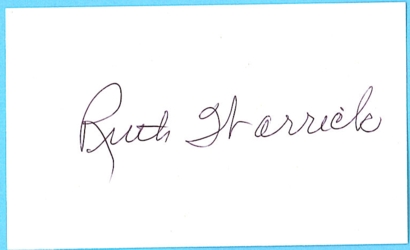 Ruth Warrick